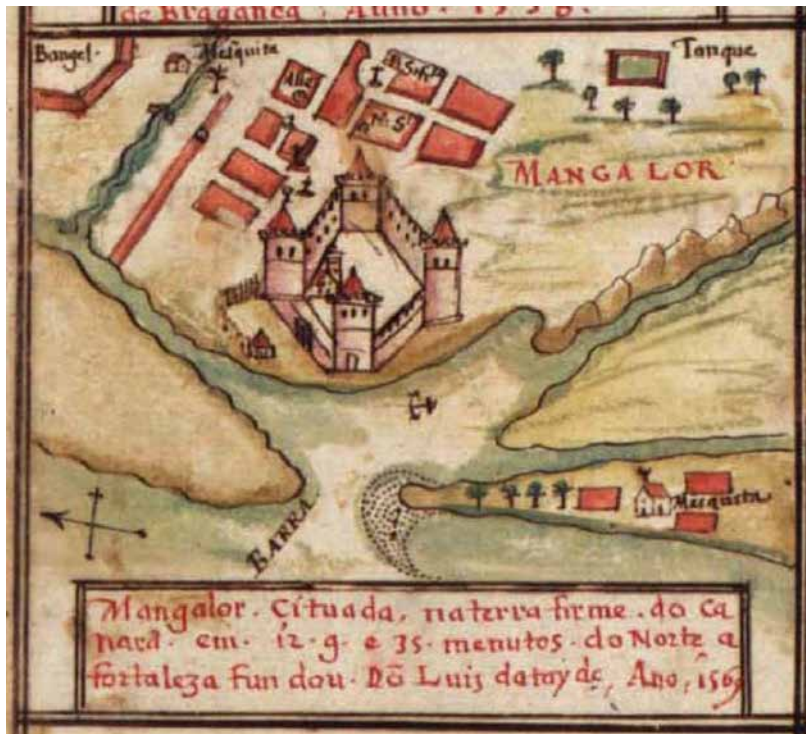 de Bragança. Anno. 1558.
Bangel.
Mesquita
Tanque
MANGALOR
BARRA
Mesquita
Mangalor. Cituada, na terra firme. do Ca
nará. em. 12. g. e 35. menutos. do Norte a
fortaleza fun dou. Dõ Luis datayde, Ano, 1569